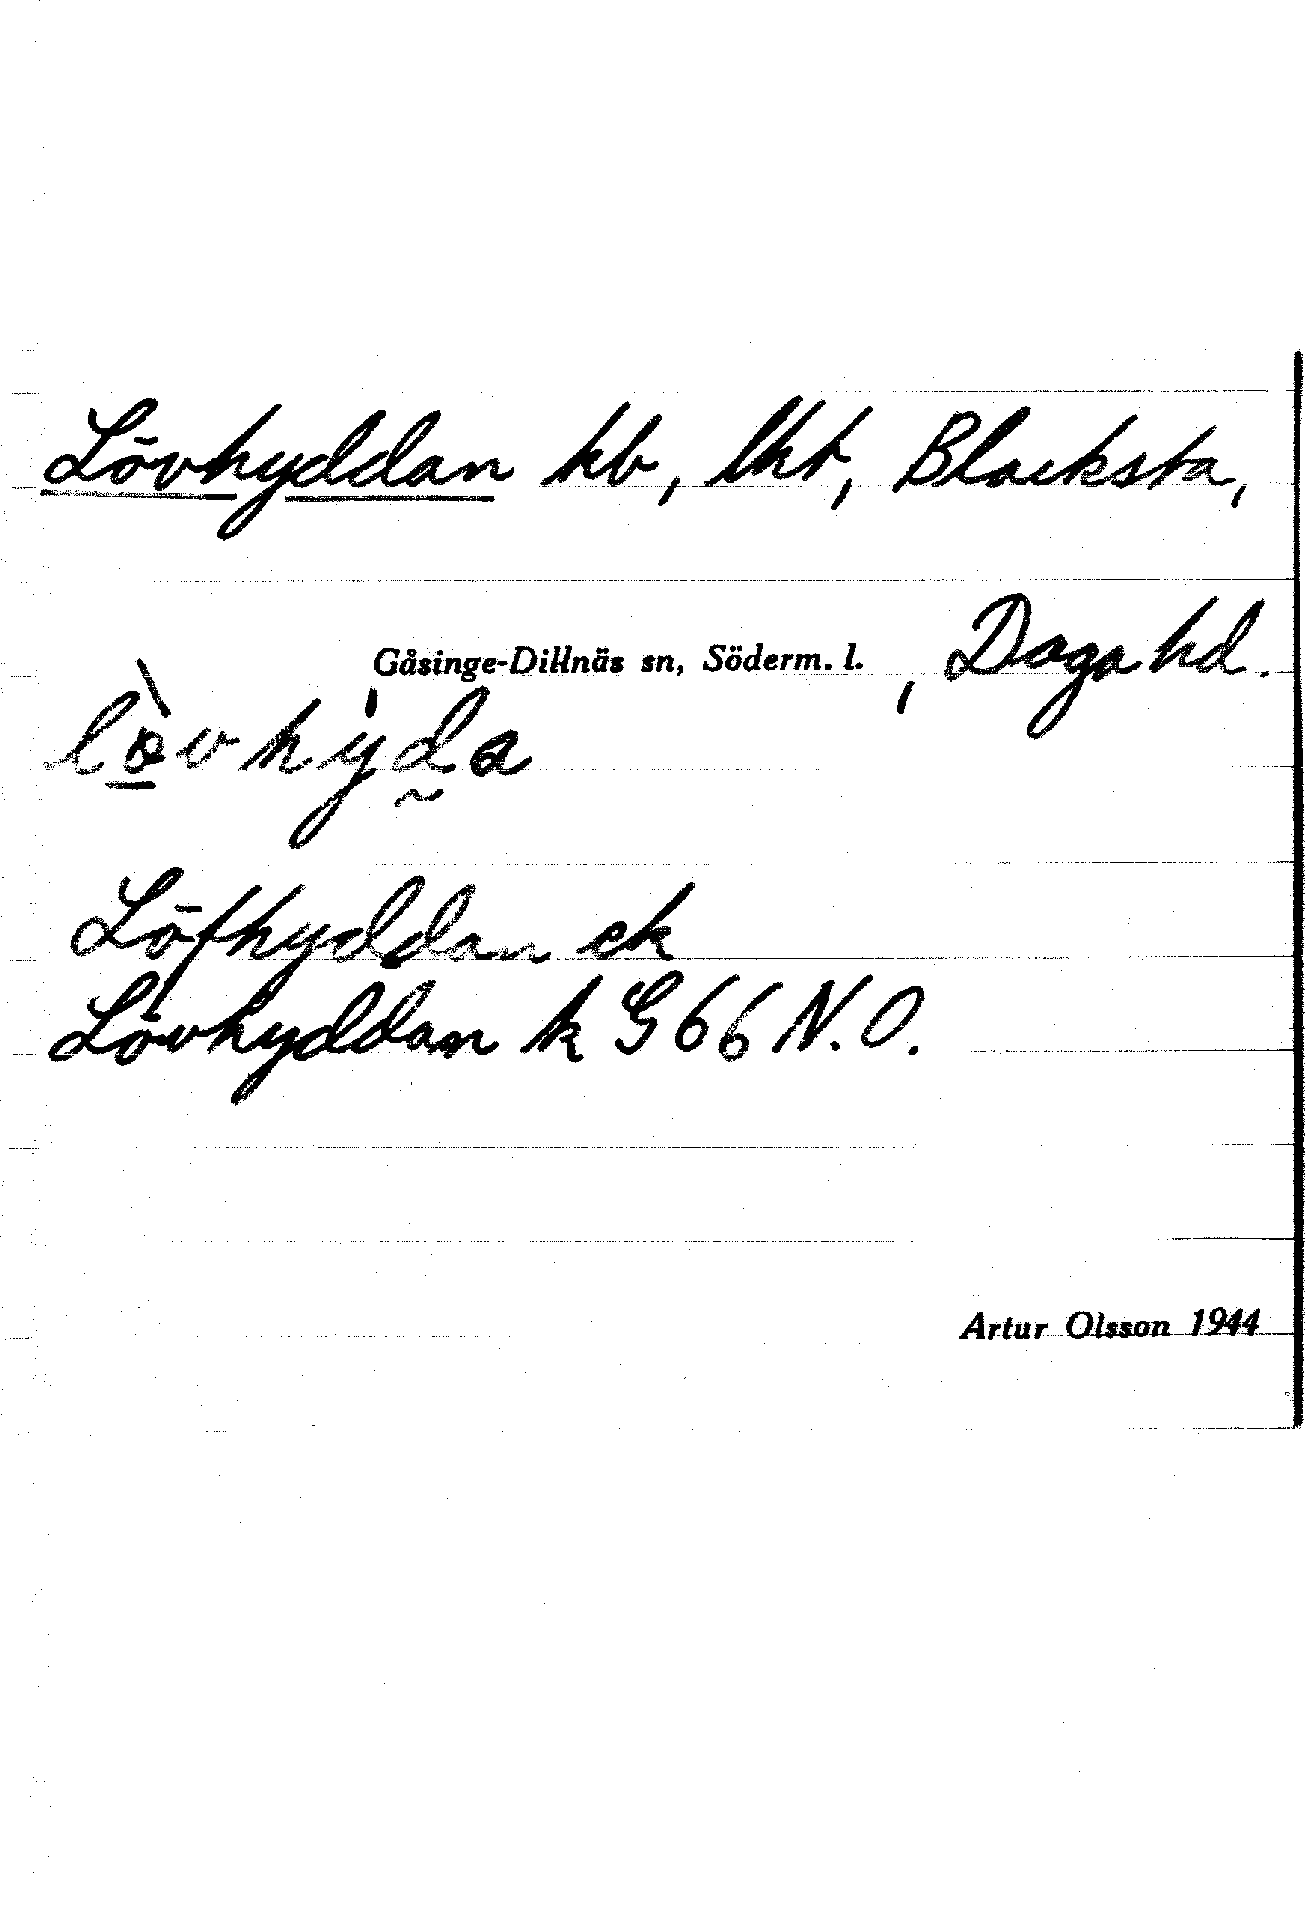 Lövhyddan hb, lht, Blacksta,
Gåsinge-Dillnäs sn, Söderm. l. , Daga hd.
lòvhyda
Löfhyddan ek
Lövhyddan k G 66 N.O.
Artur Olsson 1944